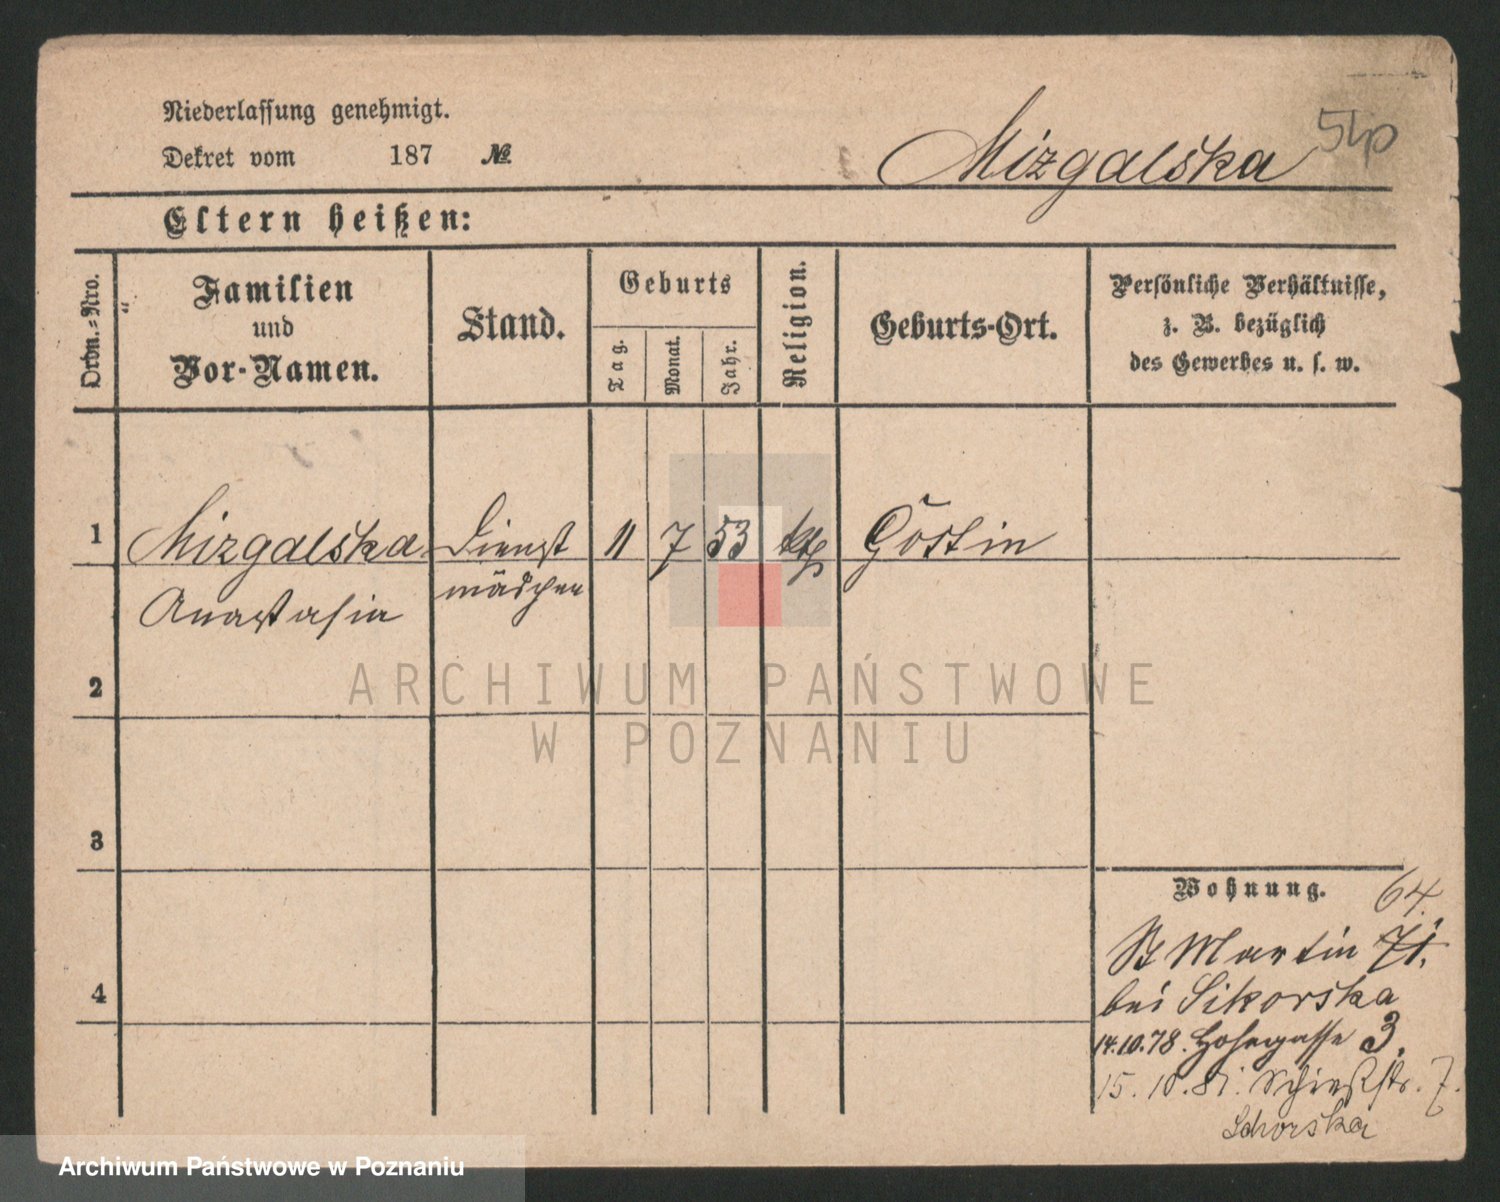 Niederlassung genehmigt.
Dekret vom 187 №
Mizgalska
Eltern heißen:
Ordn.-Nro.
Familien
und
Vor-Namen.
Stand.
Geburts
Tag.
Monat.
Jahr.
Religion.
Geburts-Ort.
Persönliche Verhältnisse,
z. B. bezüglich
des Gewerbes u. s. w.
1 Mizgalska Dienst 11 7 53 kth Göstin
Anastasia mädchen
2
ARCHIWUM PAŃSTWOWE
W POZNANIU
3
Wohnung. 64.
St Martin 71.
bei Sikorska
4
14.10.78. Hohegasse 3.
15.10.81. Schießstr. 7.
Archiwum Państwowe w Poznaniu